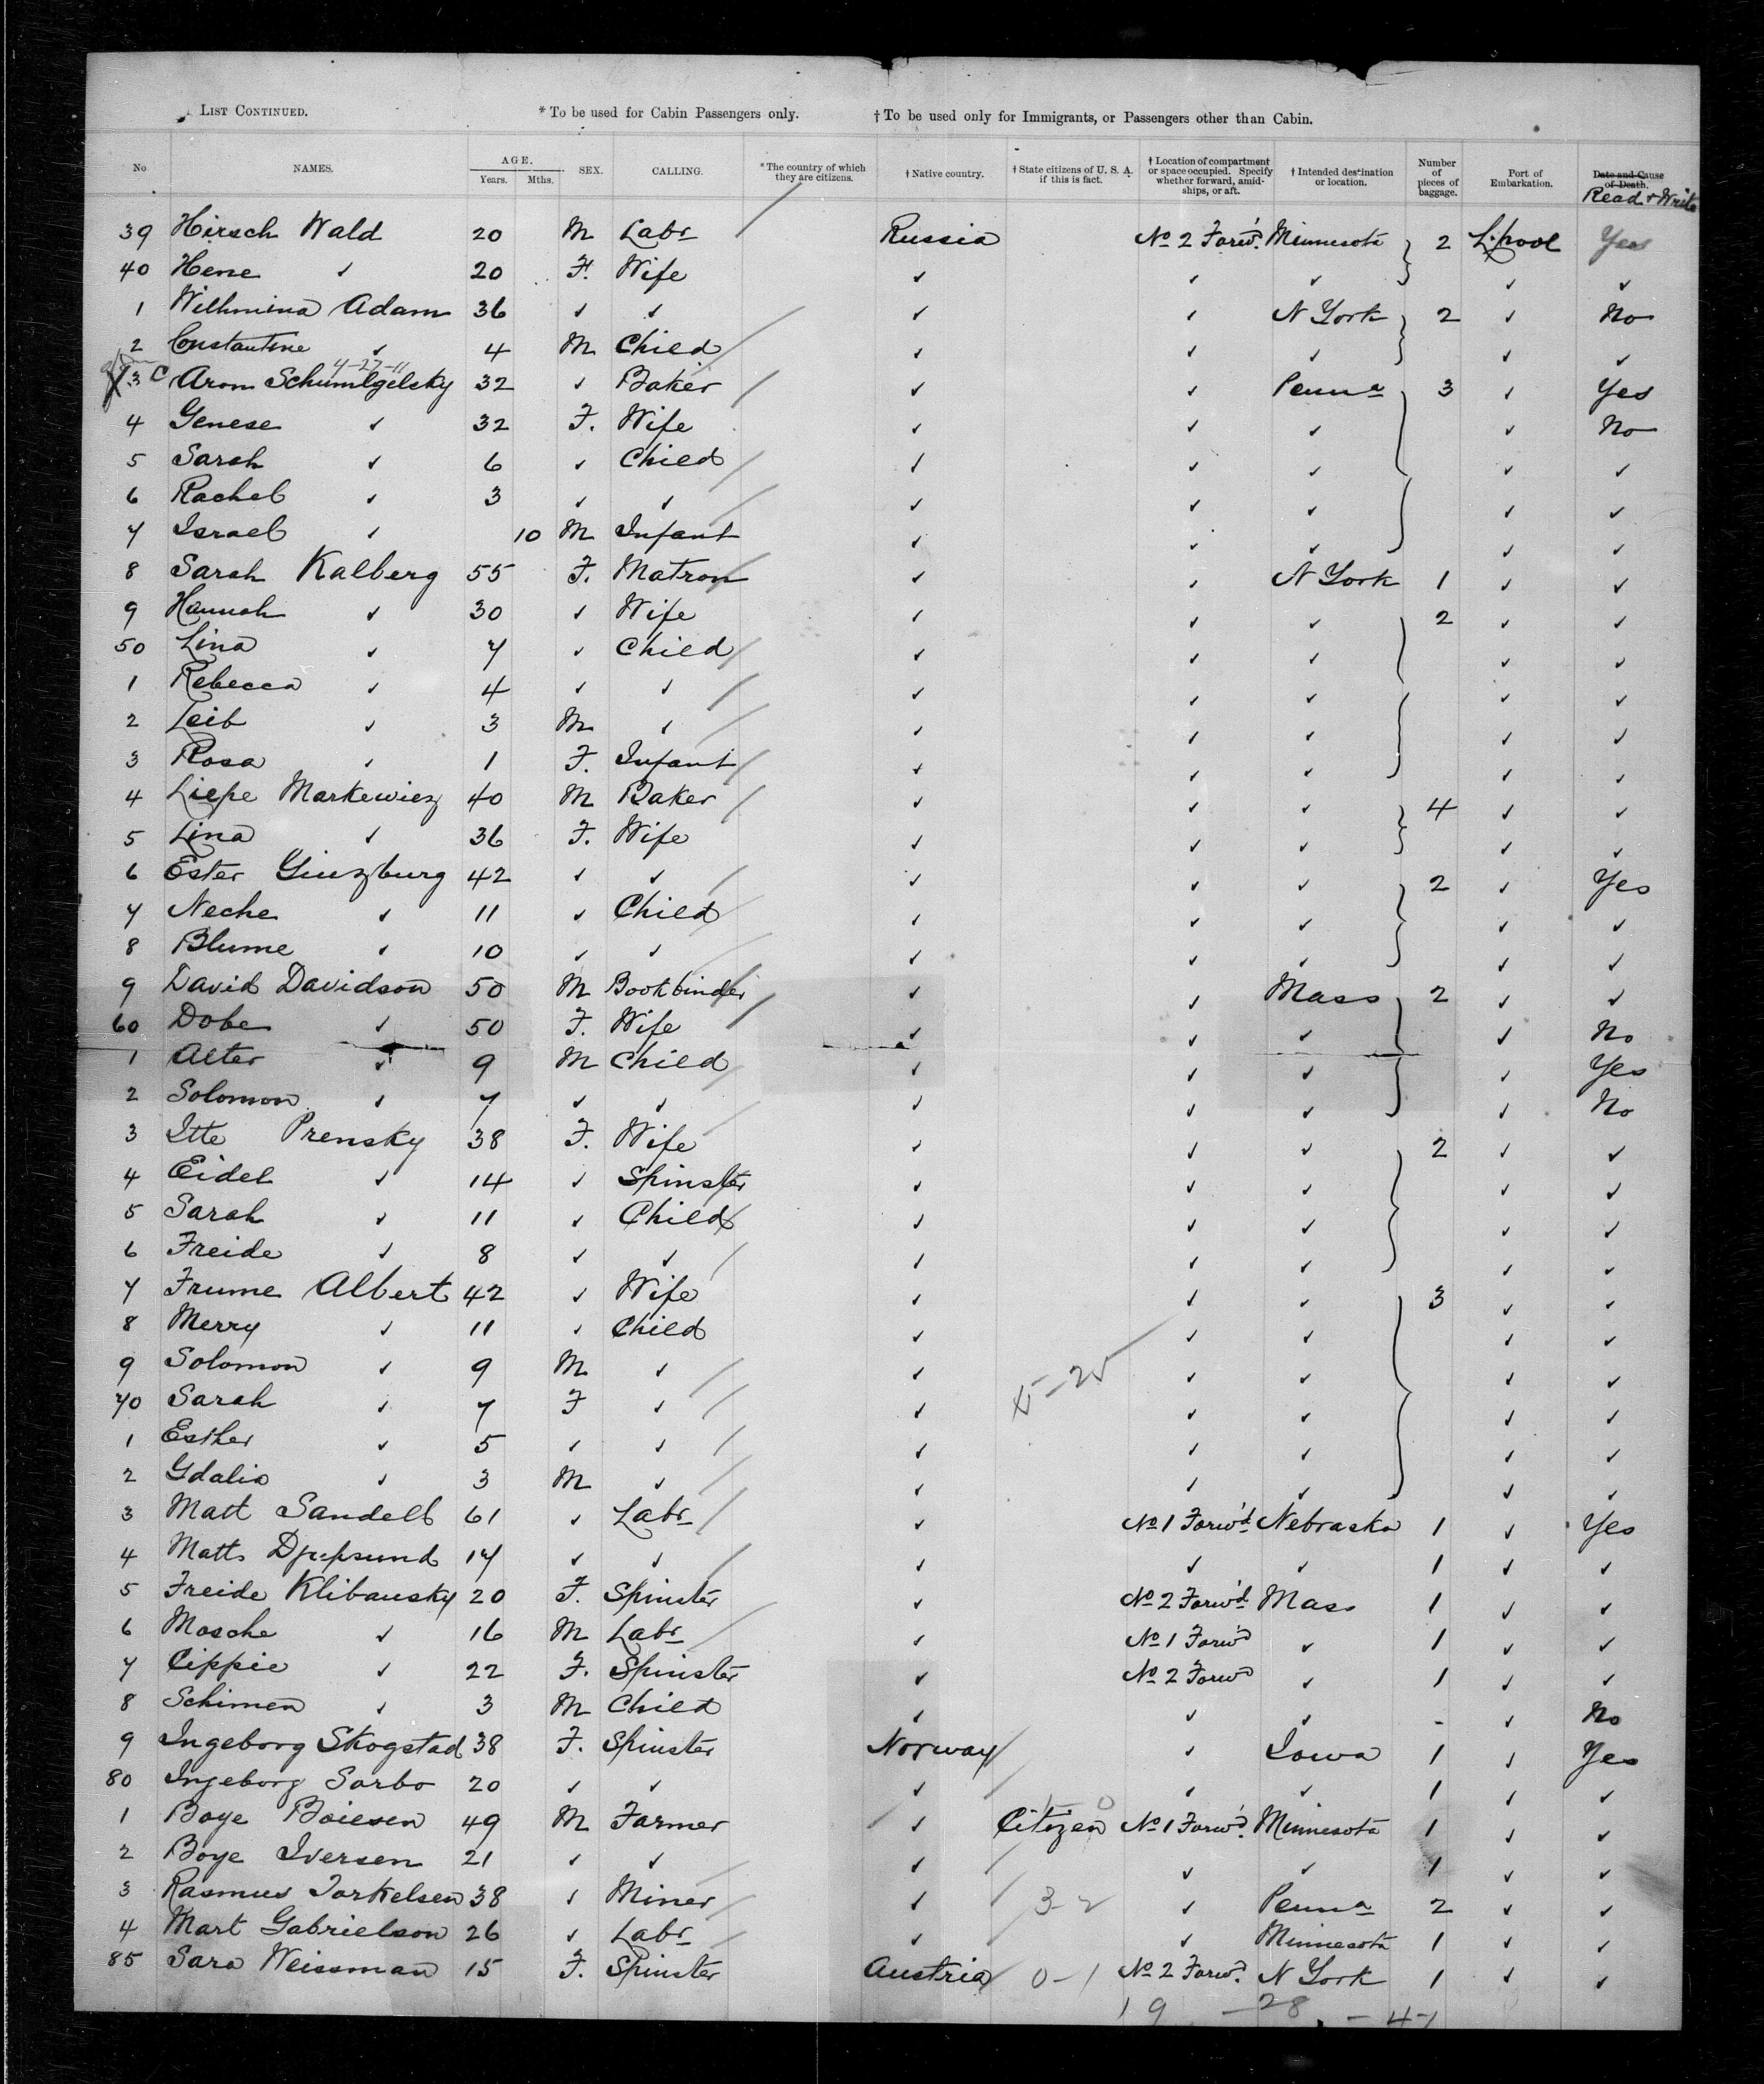 LIST CONTINUED. * To be used for Cabin Passengers only. † To be used only for Immigrants, or Passengers other than Cabin.
No NAMES. AGE. Years. Mths. SEX. CALLING. * The country of which they are citizens. † Native country. † State citizens of U. S. A. if this is fact. † Location of compartment or space occupied. Specify whether forward, amidships, or aft. † Intended destination or location. Number of pieces of baggage. Port of Embarkation. Date and Cause of Death.
Read & Write
39 Hirsch Wald 20 M Labr Russia No 2 Forw'd. Minnesota 2 L.pool Yes
40 Hene ✓ 20 F. Wife ✓ ✓ ✓ ✓ ✓
1 Wilhmina Adam 36 ✓ ✓ ✓ ✓ N York 2 ✓ No
2 Constantine ✓ 4 M Child ✓ ✓ ✓ ✓ ✓
4-27-11
3 C Aron Schumlgelsky 32 ✓ Baker ✓ ✓ Penna 3 ✓ Yes
4 Genese ✓ 32 F. Wife ✓ ✓ ✓ ✓ No
5 Sarah ✓ 6 ✓ Child ✓ ✓ ✓ ✓ ✓
6 Rachel ✓ 3 ✓ ✓ ✓ ✓ ✓ ✓ ✓
7 Israel ✓ 10 M Infant ✓ ✓ ✓ ✓ ✓
8 Sarah Kalberg 55 F. Matron ✓ ✓ N York 1 ✓ ✓
9 Hannah ✓ 30 ✓ Wife ✓ ✓ ✓ 2 ✓ ✓
50 Lina ✓ 7 ✓ Child ✓ ✓ ✓ ✓ ✓
1 Rebecca ✓ 4 ✓ ✓ ✓ ✓ ✓ ✓ ✓
2 Leib ✓ 3 M ✓ ✓ ✓ ✓ ✓ ✓
3 Rosa ✓ 1 F. Infant ✓ ✓ ✓ ✓ ✓
4 Liepe Markewiez 40 M Baker ✓ ✓ ✓ 4 ✓ ✓
5 Lina ✓ 36 F. Wife ✓ ✓ ✓ ✓ ✓
6 Ester Ginzburg 42 ✓ ✓ ✓ ✓ ✓ 2 ✓ Yes
7 Neche ✓ 11 ✓ Child ✓ ✓ ✓ ✓ ✓
8 Blume ✓ 10 ✓ ✓ ✓ ✓ ✓ ✓ ✓
9 David Davidson 50 M Bookbinder ✓ ✓ Mass 2 ✓ ✓
60 Dobe ✓ 50 F. Wife ✓ ✓ ✓ ✓ No
1 Alter ✓ 9 M Child ✓ ✓ ✓ ✓ Yes
2 Solomon ✓ 7 ✓ ✓ ✓ ✓ ✓ ✓ No
3 Itte Prensky 38 F. Wife ✓ ✓ ✓ 2 ✓ ✓
4 Eidel ✓ 14 ✓ Spinster ✓ ✓ ✓ ✓ ✓
5 Sarah ✓ 11 ✓ Child ✓ ✓ ✓ ✓ ✓
6 Freide ✓ 8 ✓ ✓ ✓ ✓ ✓ ✓ ✓
7 Frume Albert 42 ✓ Wife ✓ ✓ ✓ 3 ✓ ✓
8 Merry ✓ 11 ✓ Child ✓ ✓ ✓ ✓ ✓
9 Solomon ✓ 9 M ✓ ✓ ✓ ✓ ✓ ✓
70 Sarah ✓ 7 F ✓ ✓ ✓ ✓ ✓ ✓
1 Esther ✓ 5 ✓ ✓ ✓ ✓ ✓ ✓ ✓
2 Gdalia ✓ 3 M ✓ ✓ ✓ ✓ ✓ ✓
3 Matt Sandell 61 ✓ Labr ✓ No 1 Forw'd Nebraska 1 ✓ Yes
4 Matts 17 ✓ ✓ ✓ ✓ ✓ 1 ✓ ✓
5 Freide Klibansky 20 F. Spinster ✓ No 2 Forw'd Mass 1 ✓ ✓
6 Mosche ✓ 16 M Labr ✓ No 1 Forw'd ✓ 1 ✓ ✓
7 Cippie ✓ 22 F. Spinster ✓ No 2 Forwd ✓ 1 ✓ ✓
8 Schimen ✓ 3 M Child ✓ ✓ ✓ - ✓ No
9 Ingeborg Skogstad 38 F. Spinster Norway ✓ Iowa 1 ✓ Yes
80 Ingeborg Sorbo 20 ✓ ✓ ✓ ✓ ✓ 1 ✓ ✓
1 Boye Boiesen 49 M Farmer ✓ Citizen No 1 Forw'd. Minnesota 1 ✓ ✓
2 Boye Iversen 21 ✓ ✓ ✓ ✓ ✓ 1 ✓ ✓
3 Rasmus Torkelsen 38 ✓ Miner ✓ 3-2 ✓ Penna 2 ✓ ✓
4 Mart Gabrielson 26 ✓ Labr ✓ ✓ Minnesota 1 ✓ ✓
85 Sara Weissman 15 F. Spinster Austria 0-1 No 2 Forw'd. N York 1 ✓ ✓
19 - 28 - 47